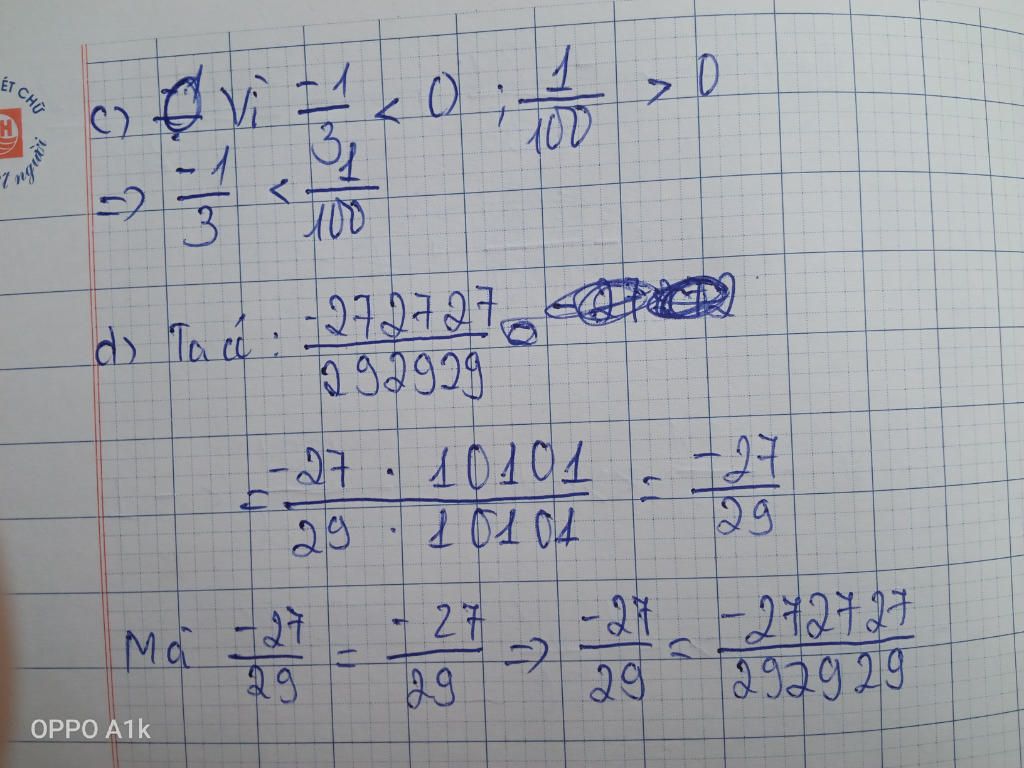 ÉT CHỮ
H
người
c) Vì -1/3 < 0 ; 1/100 > 0
=> -1/3 < 1/100
d) Ta có : -272727/292929
= -27 . 10101/29 . 10101 = -27/29
Mà -27/29 = -27/29 => -27/29 = -272727/292929
OPPO A1k